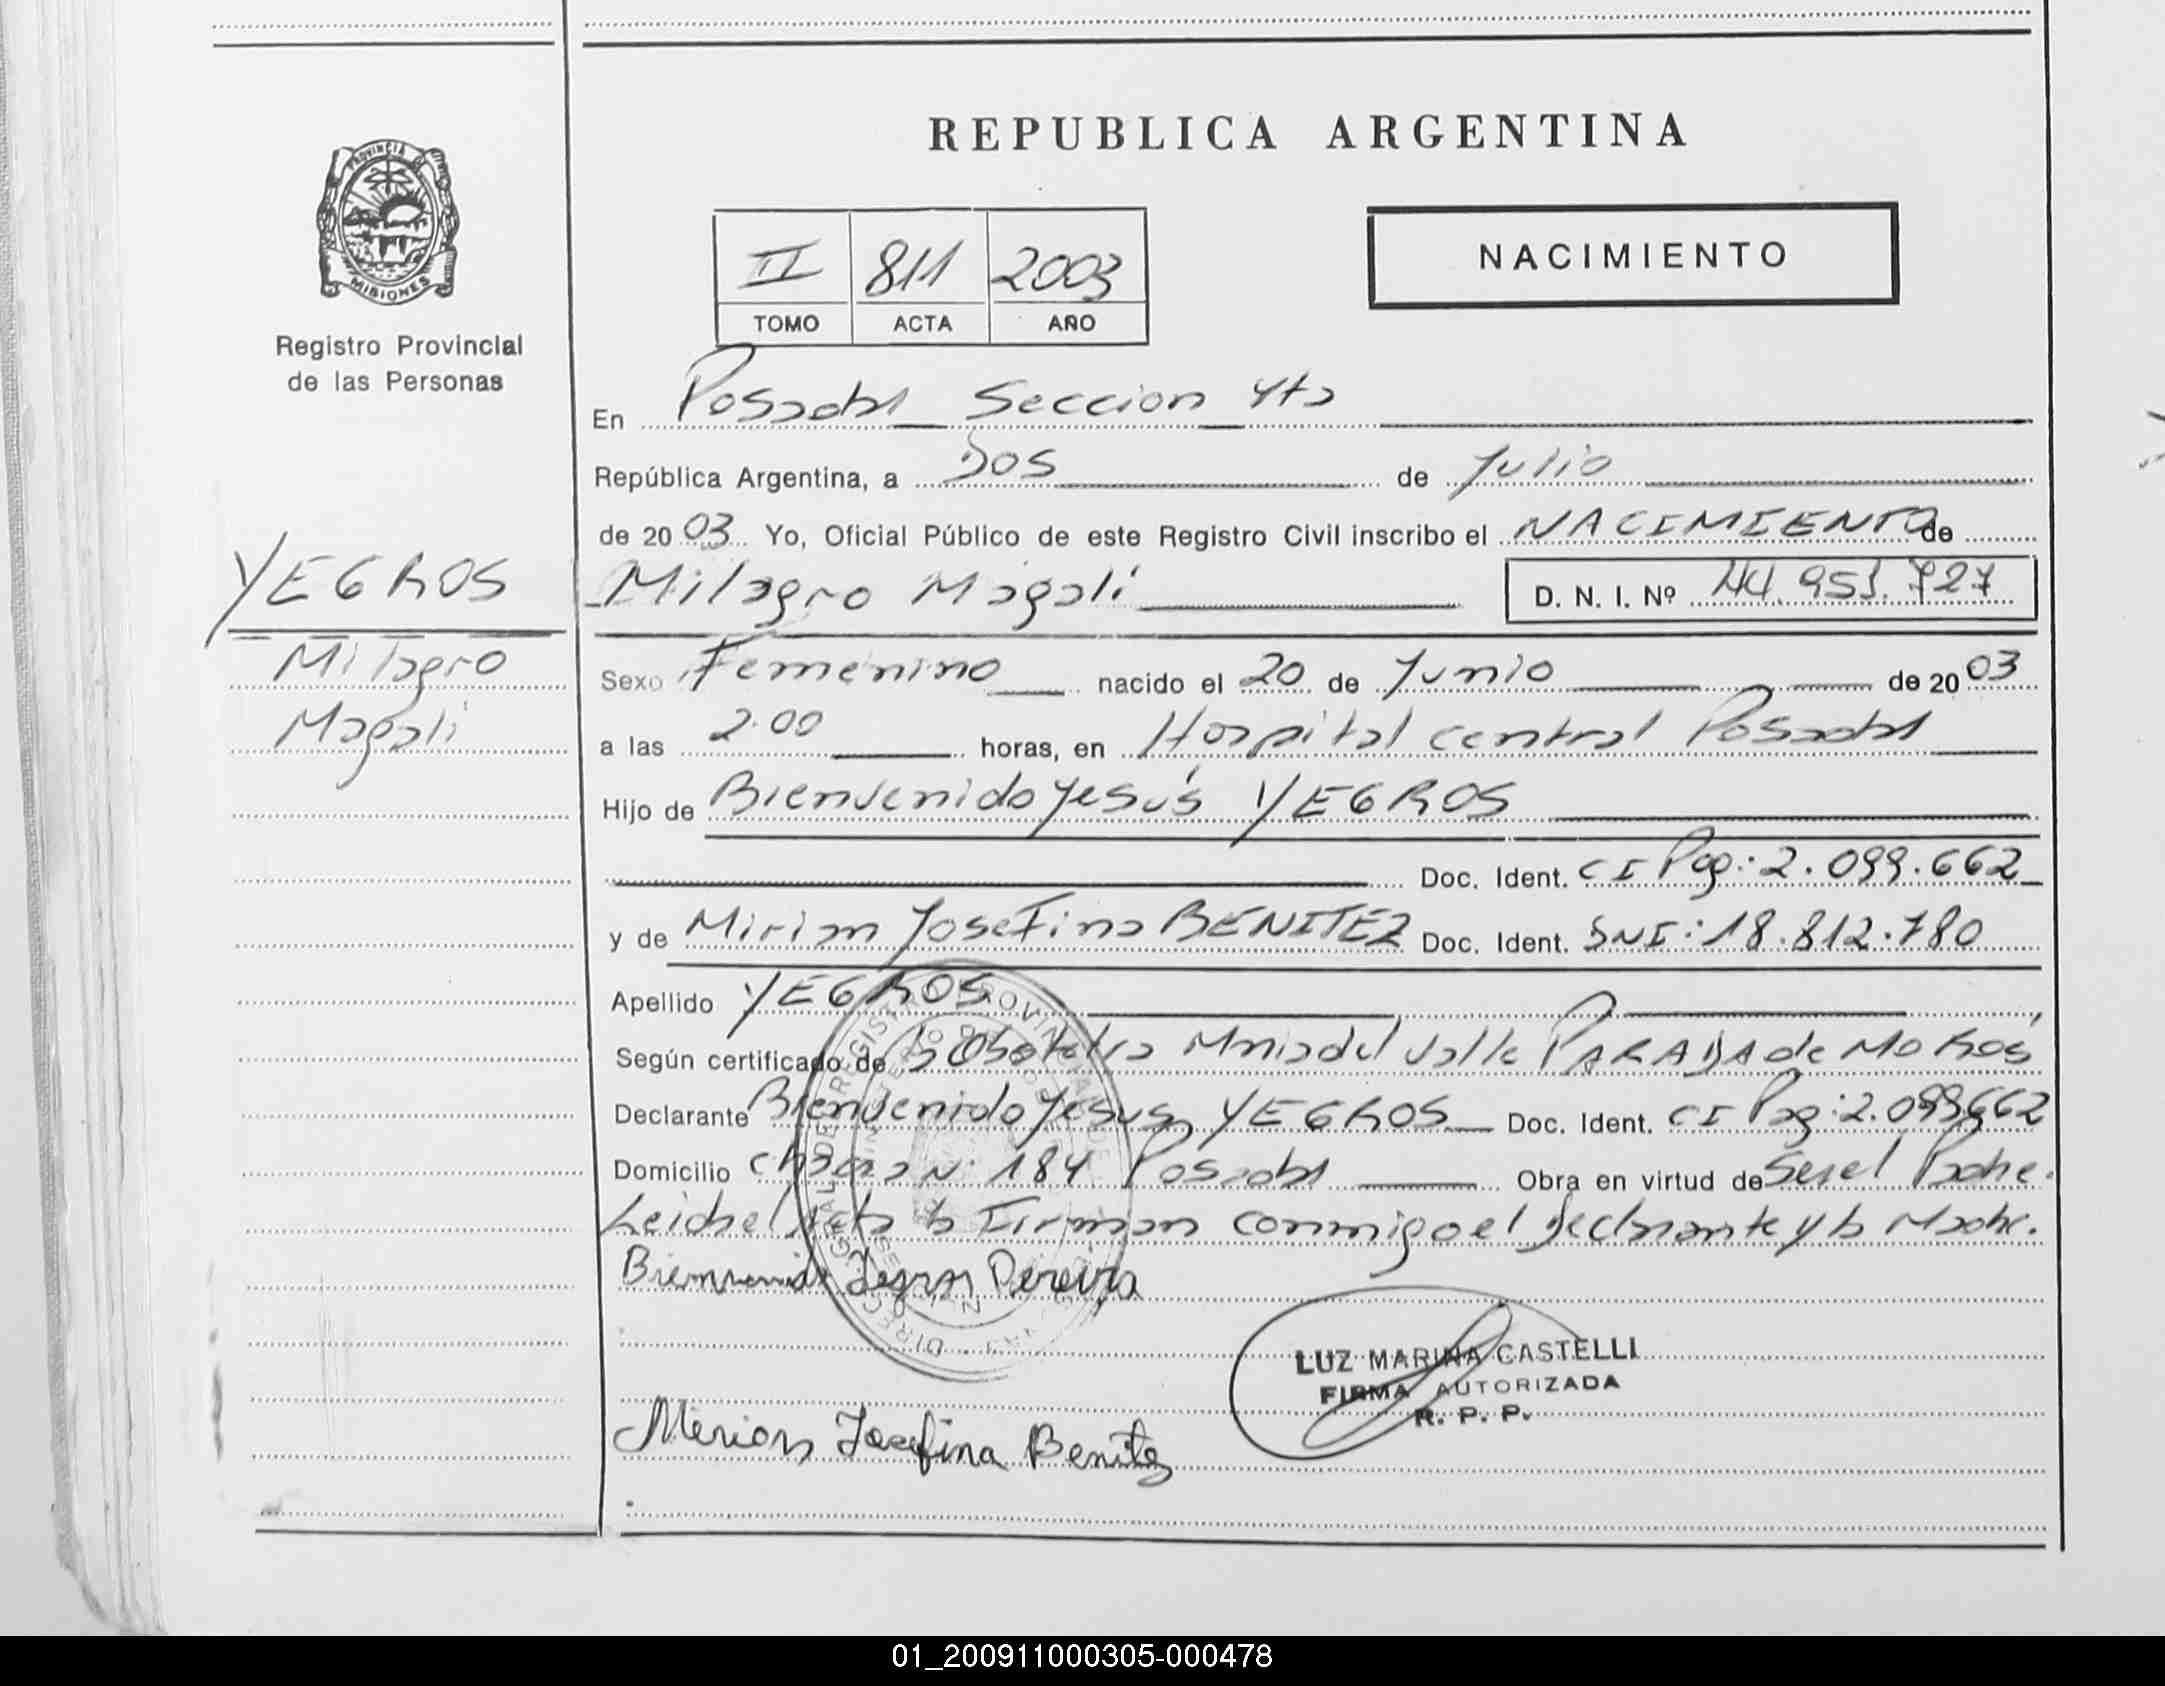 REPUBLICA ARGENTINA
PROVINCIA DE MISIONES
Registro Provincial
de las Personas
II 811 2003
TOMO ACTA AÑO
NACIMIENTO
En Posadas Seccion 4ta
República Argentina, a Dos de Julio
de 2003 Yo, Oficial Público de este Registro Civil inscribo el NACIMIENTO de
YEGROS
Milagro Magali
Milagro Magalí D. N. I. Nº 44.951.727
Sexo Femenino nacido el 20 de Junio de 2003
a las 2.00 horas, en Hospital Central Posadas
Hijo de Bienvenido Jesús YEGROS
Doc. Ident. CI Pag: 2.099.662
y de Miriam Josefina BENITEZ Doc. Ident. DNI: 18.812.780
Apellido YEGROS
Según certificado de la Obstetra Maria del Valle PARADA de MOROS
Declarante Bienvenido Jesus YEGROS Doc. Ident. CI Pag: 2.099662
Domicilio Chacra N. 184 Posadas Obra en virtud de Ser el Padre.
Leida el Acta la Firman conmigo el Declarante y la Madre.
Jesus Pereira
Josefina Benitez
LUZ MARINA CASTELLI
FIRMA AUTORIZADA
R. P. P.
01_200911000305-000478